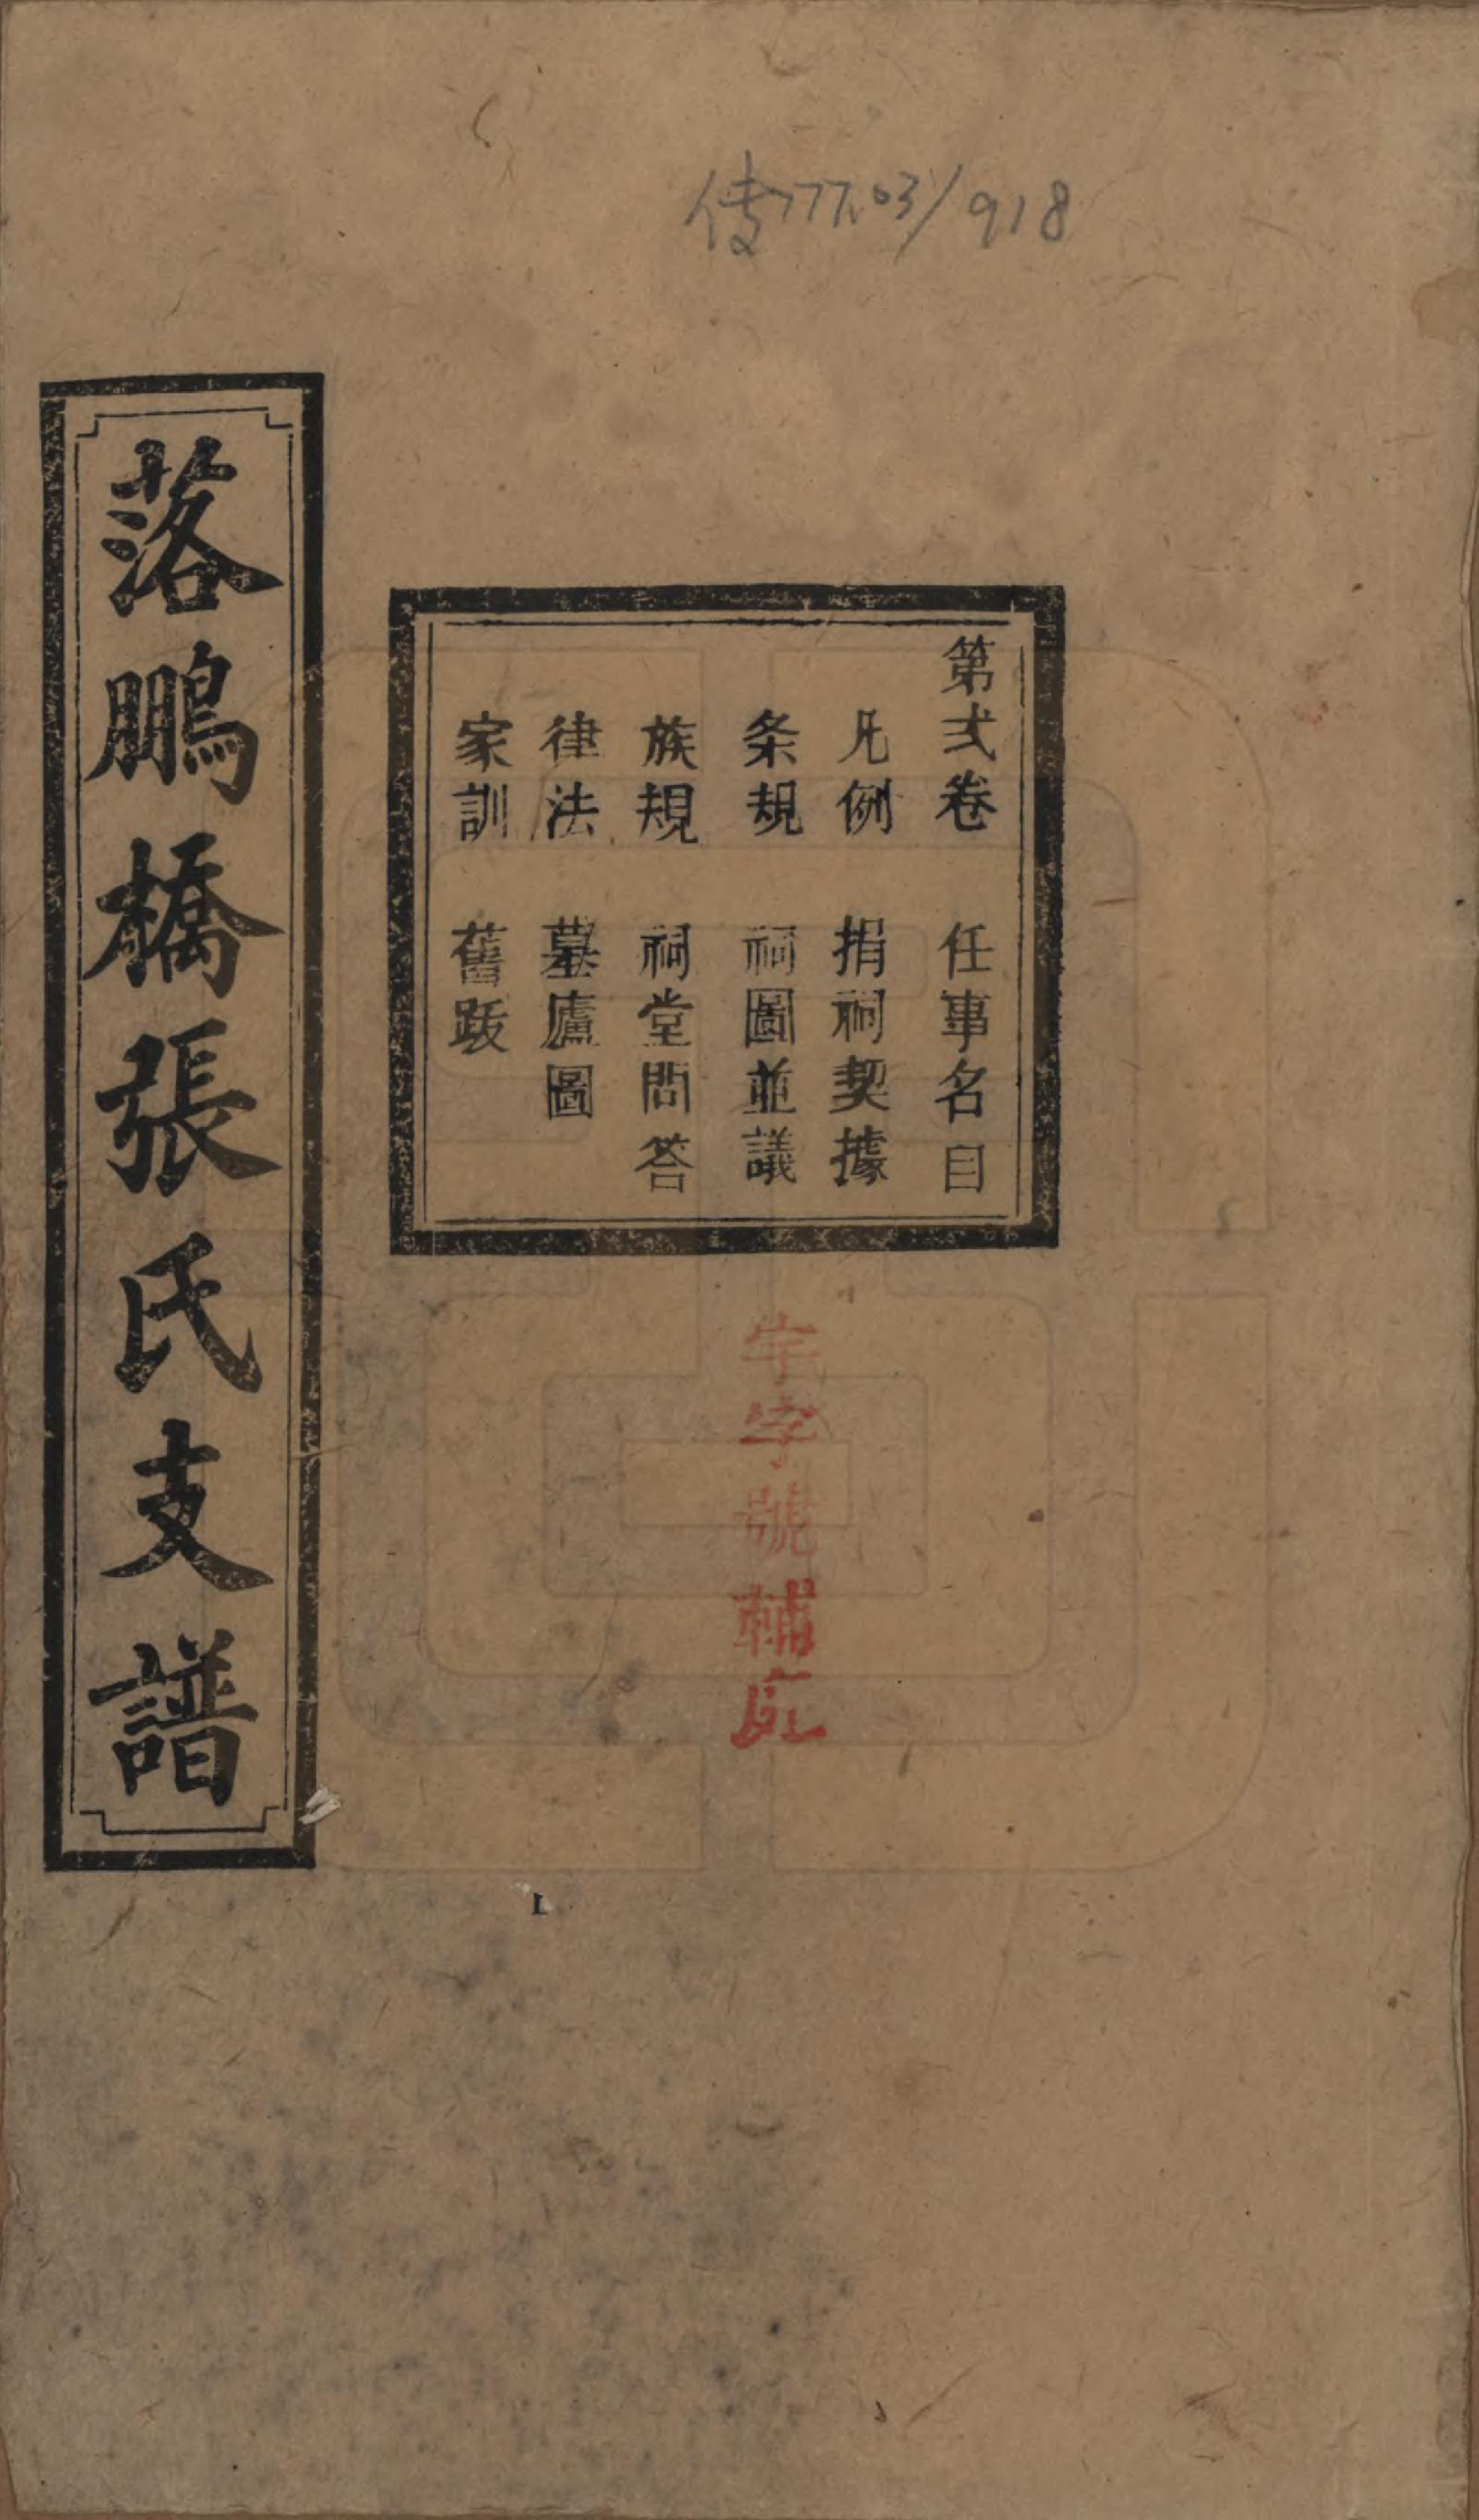 傳777.03/918
第弍卷 任事名目
凡例 捐祠契據
条規 祠圖並議
族規 祠堂問答
律法 墓廬圖
家訓 舊跋
落鵬橋張氏支譜
字號輔